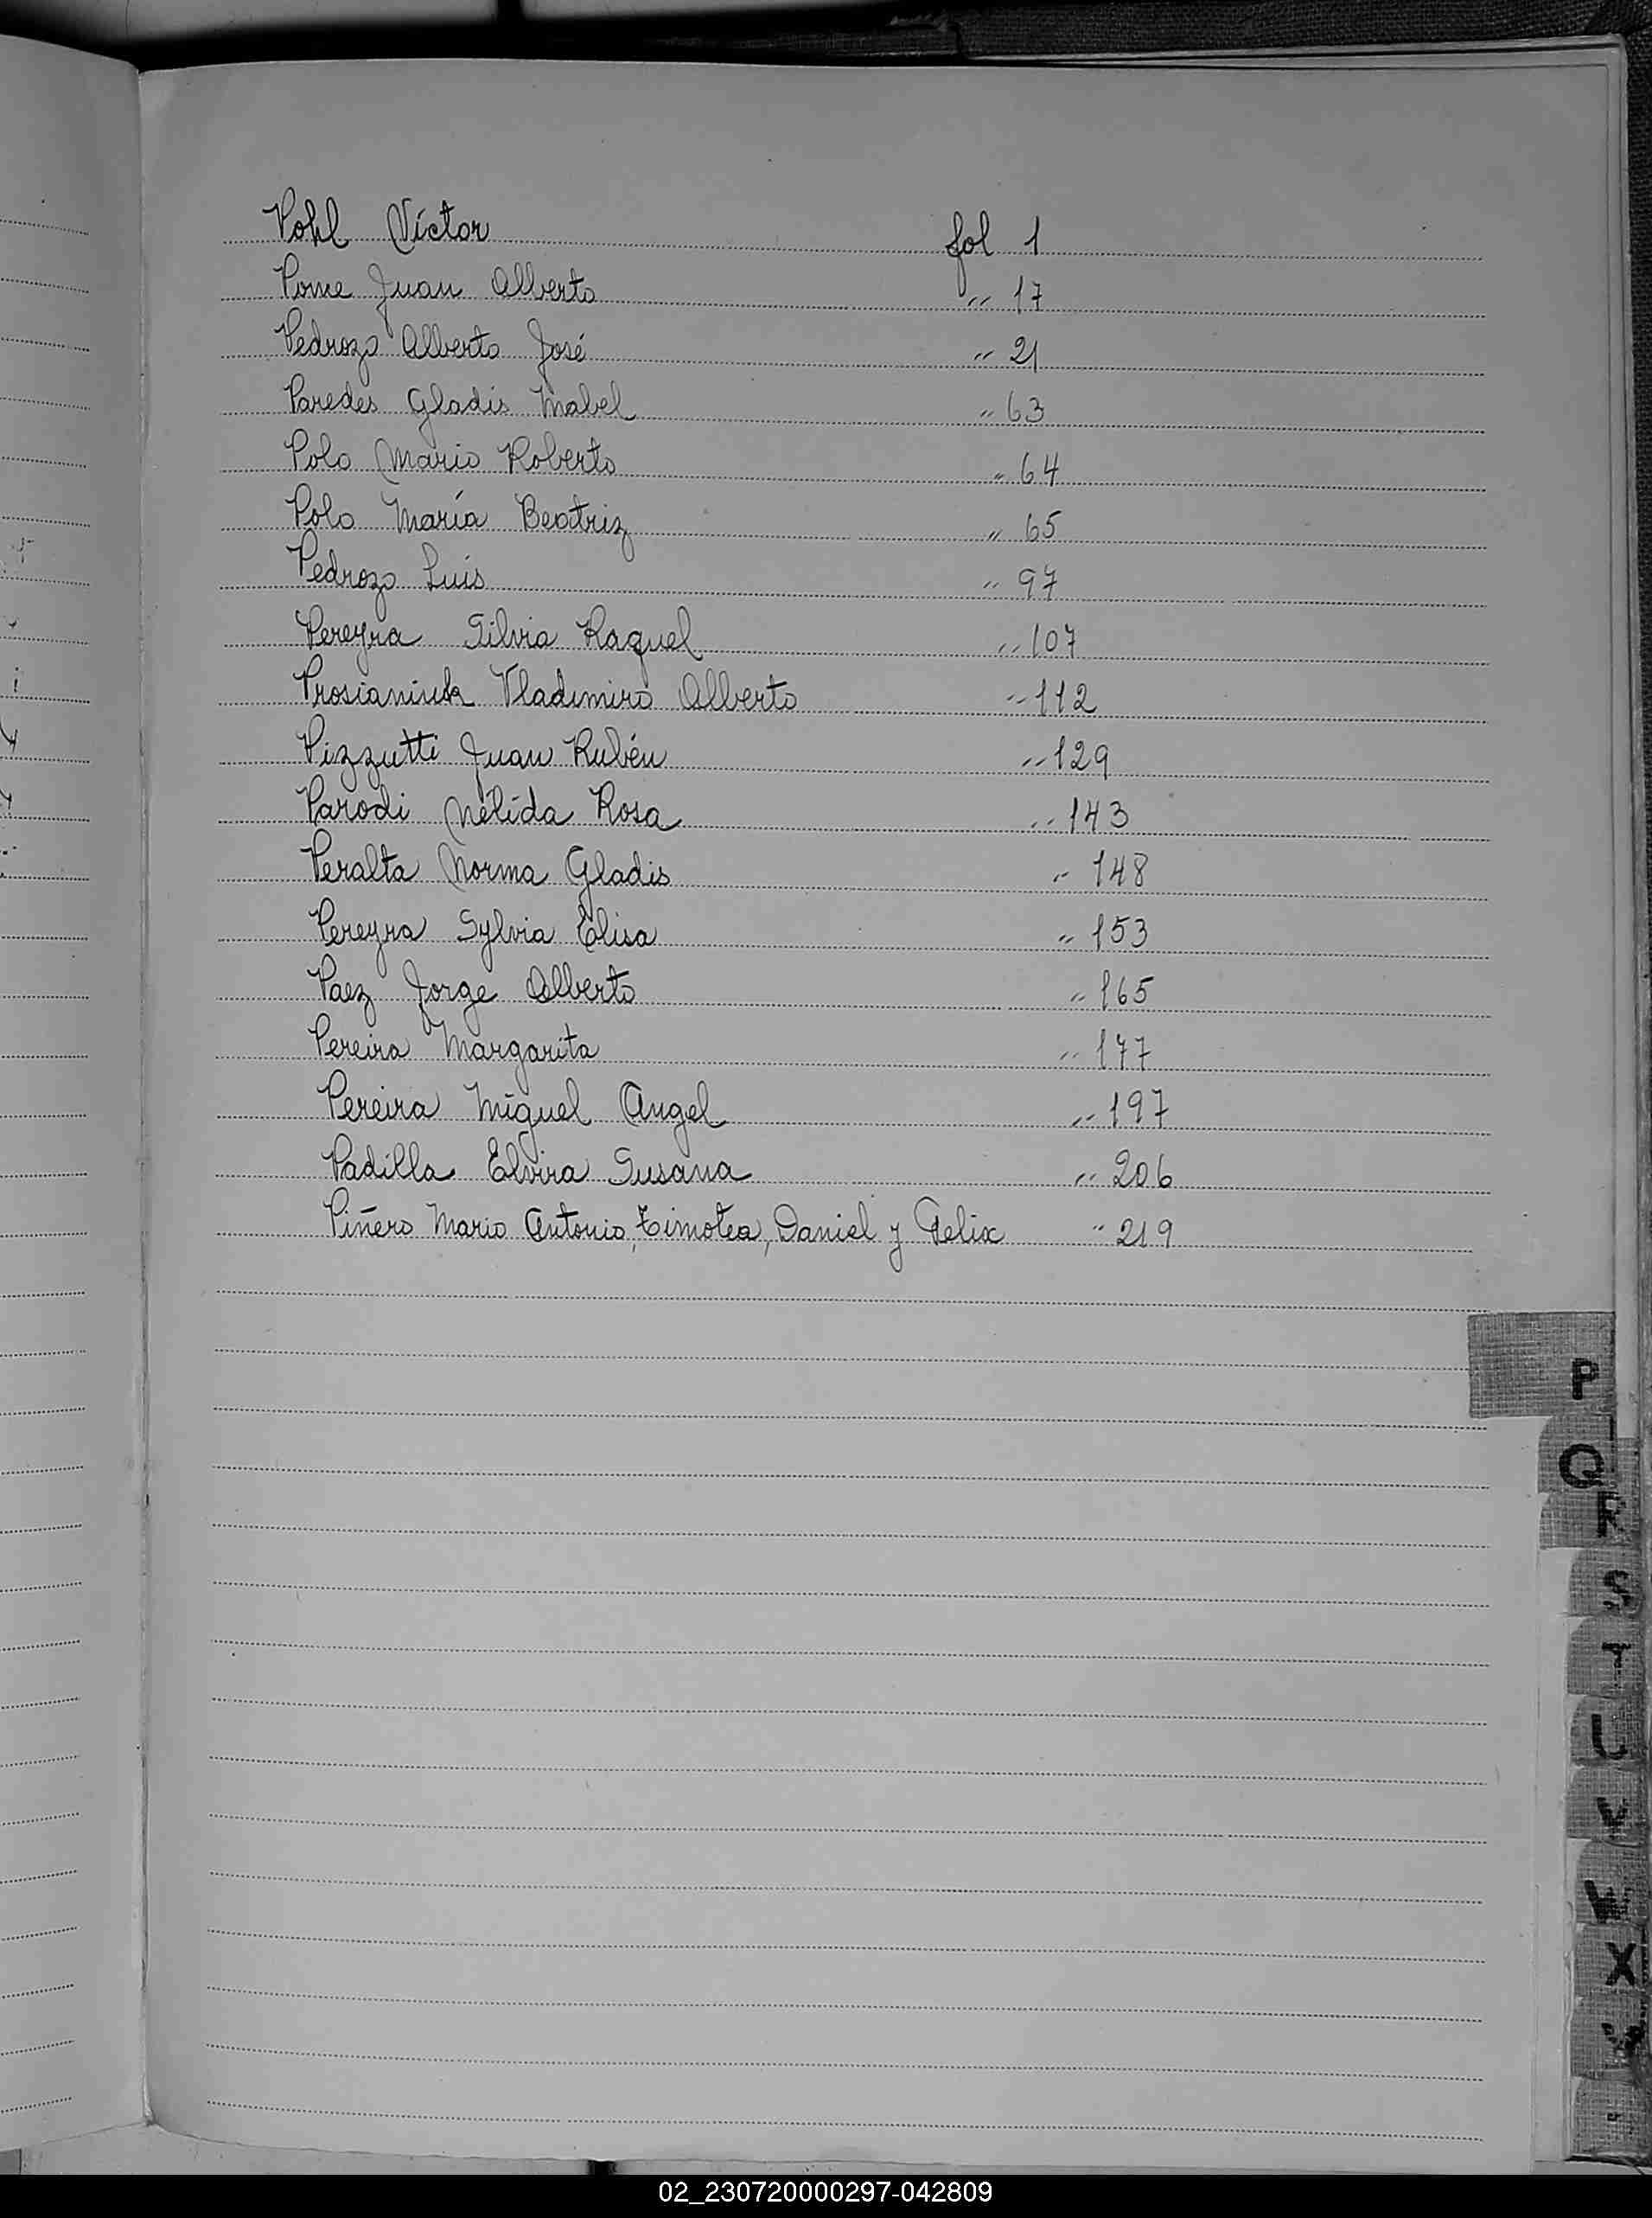 Pohl Víctor fol 1
Pome Juan Alberto " 17
Pedrozo Alberto José " 21
Paredes Gladis Mabel " 63
Polo Mario Roberto " 64
Polo María Beatriz " 65
Pedrozo Luis " 97
Pereyra Silvia Raquel " 107
Prosianiuk Vladimiro Alberto " 112
Pizzutti Juan Rubén " 129
Parodi Nélida Rosa " 143
Peralta Norma Gladis " 148
Pereyra Sylvia Elisa " 153
Paez Jorge Alberto " 165
Pereira Margarita " 177
Pereira Miguel Angel " 197
Padilla Elvira Susana " 206
Piñero Mario Antonio, Timotea, Daniel y Felix " 219
P
Q
R
S
T
U
V
W
X
02_230720000297-042809